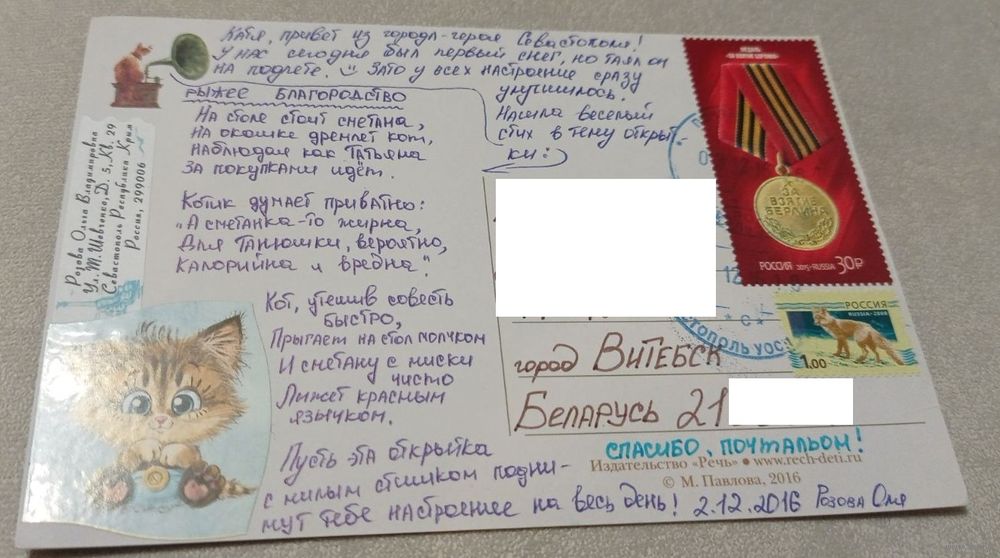 Катя, привет из города-героя Севастополя!
У нас сегодня был первый снег, но таял он
на подлёте. Зато у всех настроение сразу
улучшилось.
Нашла весёлый
стих в тему открыт
ки:)
РЫЖЕЕ БЛАГОРОДСТВО
На столе стоит сметана,
На окошке дремлет кот,
Наблюдая как Татьяна
За покупками идёт.
Котик думает приватно:
"А сметанка-то жирна,
Для Танюшки, вероятно,
Калорийна и вредна".
Кот, утешив совесть
быстро,
Прыгает на стол молчком
И сметану с миски
чисто
Лижет красным
язычком.
Пусть эта открытка
с милым стишком подни-
мут тебе настроение на весь день! 2.12.2016 Розова Оля
Розова Ольга Владимировна
Севастополь Республика Крым
Россия, 299006
МЕДАЛЬ
«ЗА ВЗЯТИЕ БЕРЛИНА»
ЗА
ВЗЯТИЕ
БЕРЛИНА
РОССИЯ 2015·RUSSIA 30₽
РОССИЯ
RUSSIA·2008
1.00
город ВИТЕБСК
БЕЛАРУСЬ 21
СПАСИБО, ПОЧТАЛЬОН!
Издательство «Речь» • www.rech-deti.ru
© М. Павлова, 2016